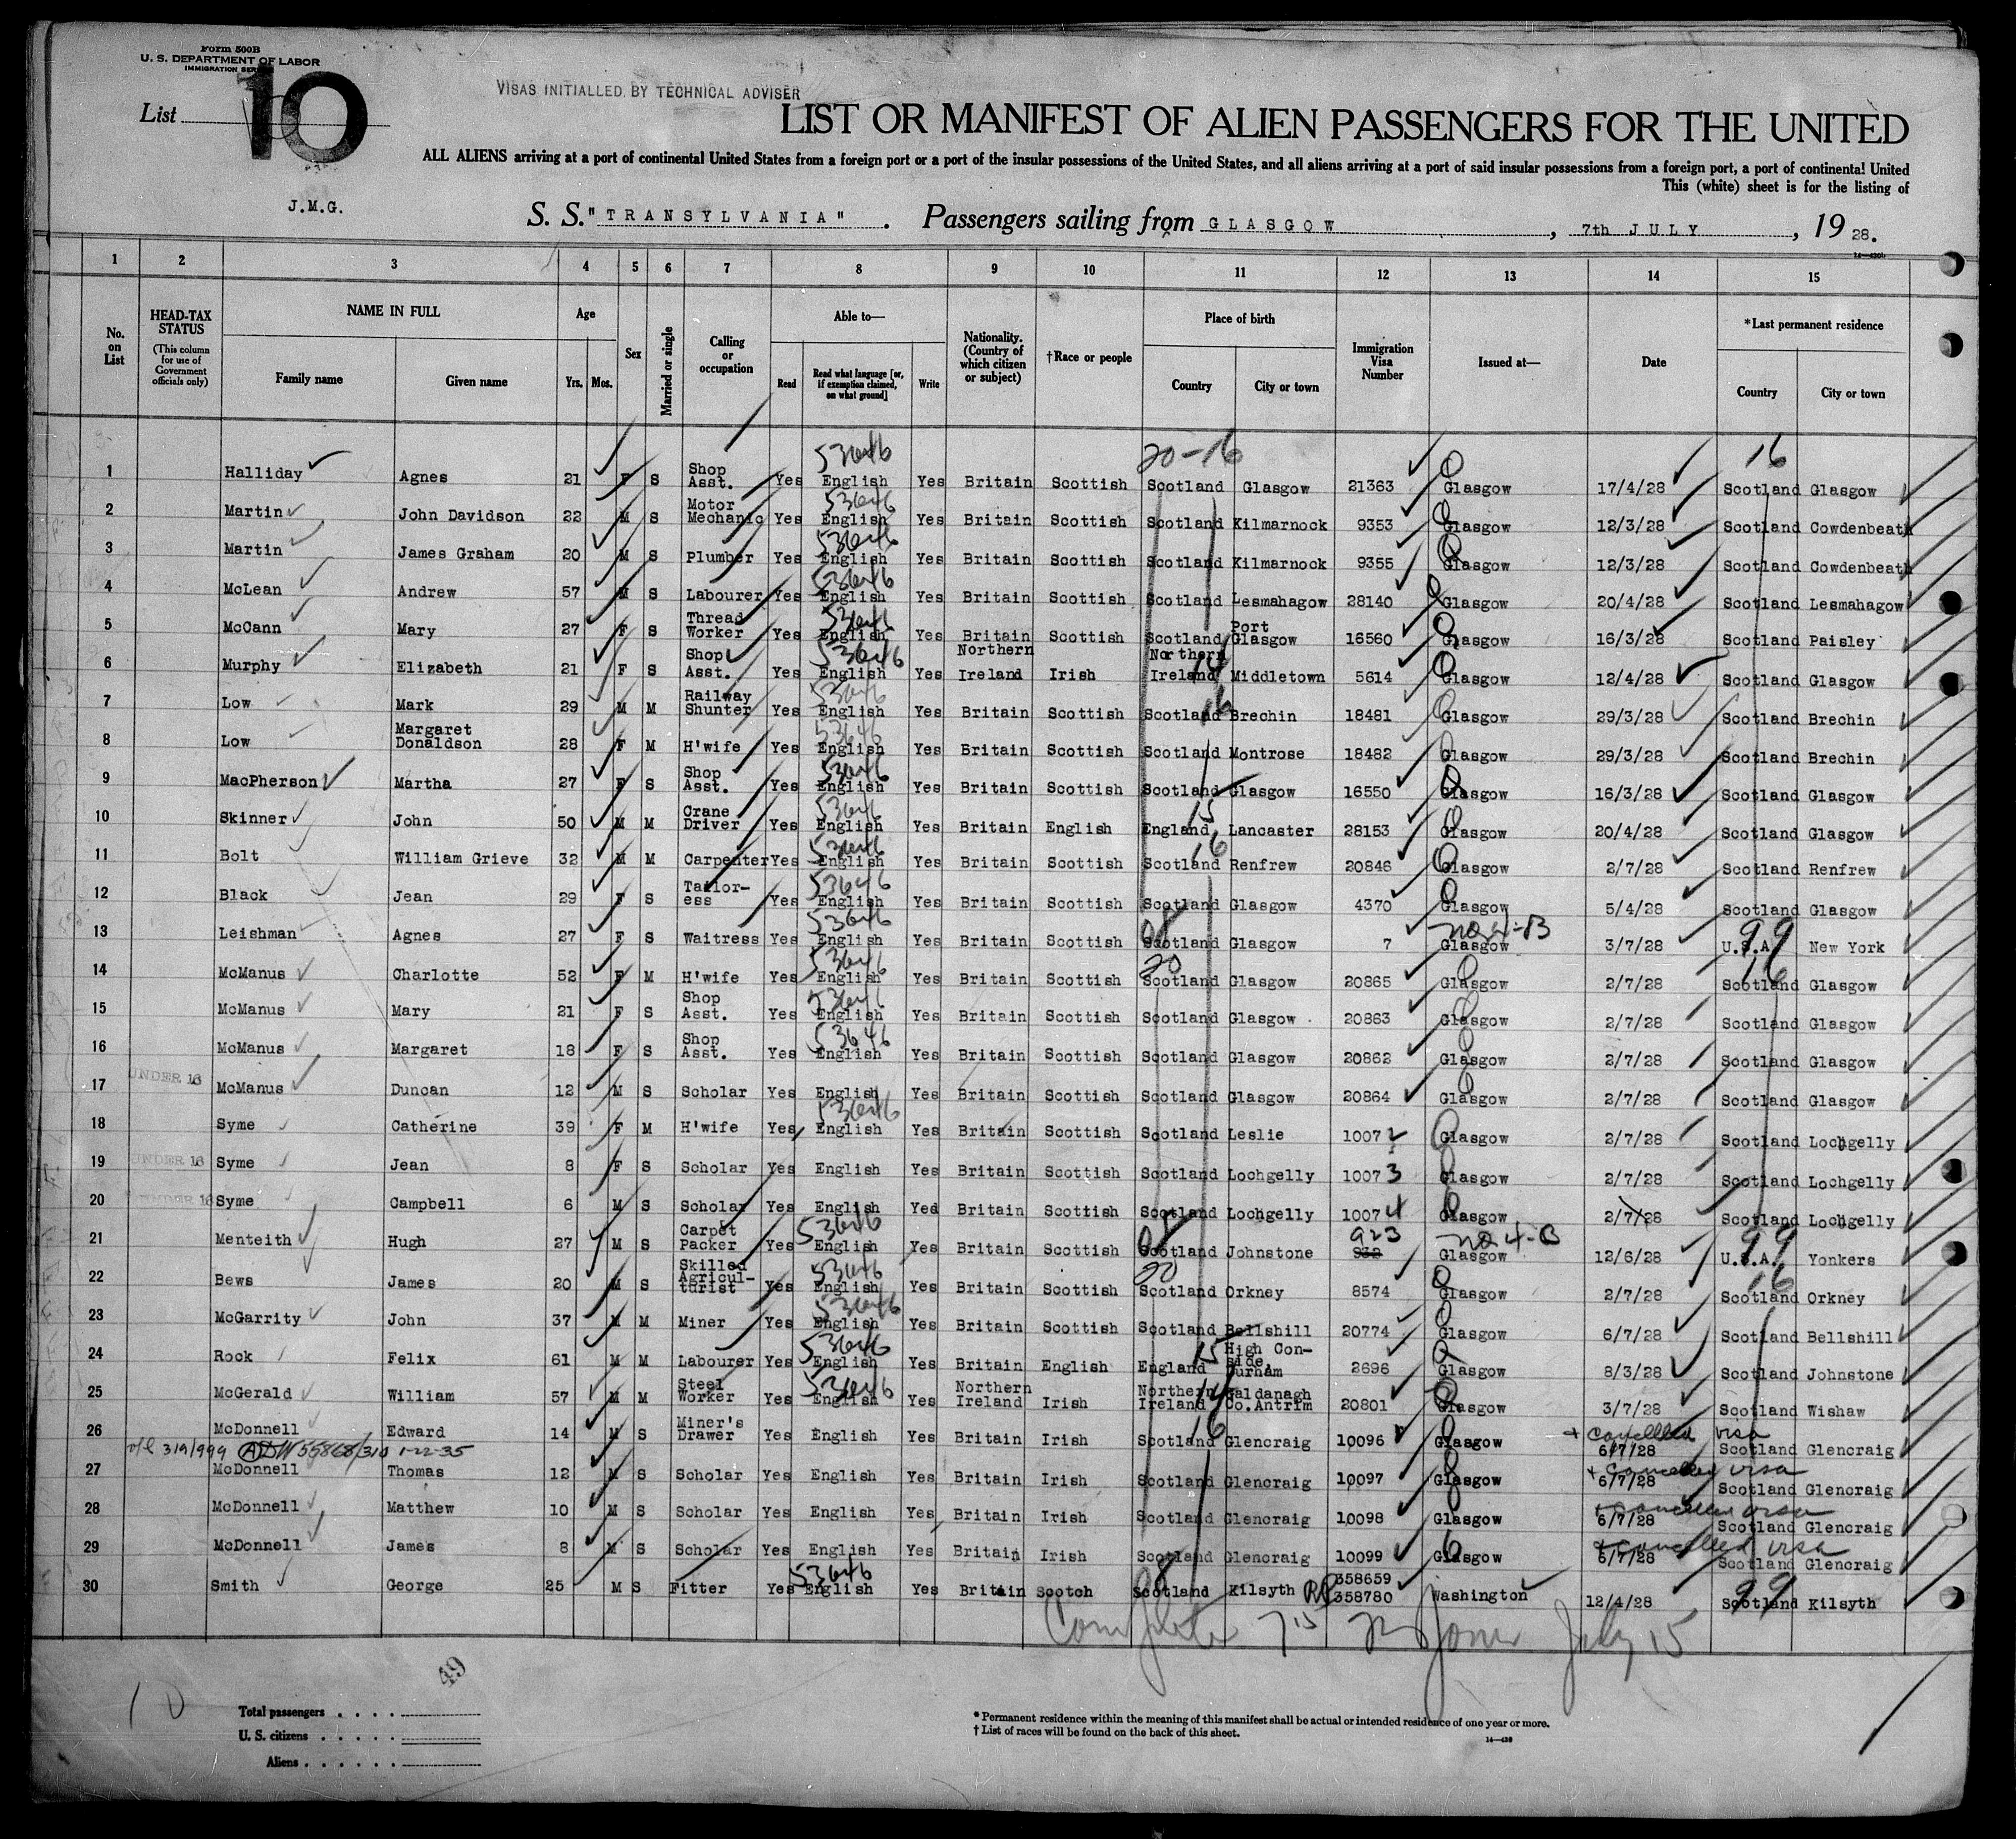 Form 500B
U. S. DEPARTMENT OF LABOR
IMMIGRATION
List 10
VISAS INITIALLED BY TECHNICAL ADVISER
LIST OR MANIFEST OF ALIEN PASSENGERS FOR THE UNITED
ALL ALIENS arriving at a port of continental United States from a foreign port or a port of the insular possessions of the United States, and all aliens arriving at a port of said insular possessions from a foreign port, a port of continental United
This (white) sheet is for the listing of
J.M.G.
S. S. "TRANSYLVANIA". Passengers sailing from GLASGOW, 7th JULY, 1928.
1 2 3 4 5 6 7 8 9 10 11 12 13 14 15
No. on List
HEAD-TAX STATUS (This column for use of Government officials only)
NAME IN FULL
Family name Given name
Age
Yrs. Mos.
Sex
Married or single
Calling or occupation
Able to—
Read
Read what language [or, if exemption claimed, on what ground]
Write
Nationality. (Country of which citizen or subject)
†Race or people
Place of birth
Country City or town
Immigration Visa Number
Issued at—
Date
*Last permanent residence
Country City or town
53646 20-16 16
1 Halliday Agnes 21 F S Shop Asst. Yes English Yes Britain Scottish Scotland Glasgow 21363 Glasgow 17/4/28 Scotland Glasgow
53646
2 Martin John Davidson 22 M S Motor Mechanic Yes English Yes Britain Scottish Scotland Kilmarnock 9353 Glasgow 12/3/28 Scotland Cowdenbeath
53646
3 Martin James Graham 20 M S Plumber Yes English Yes Britain Scottish Scotland Kilmarnock 9355 Glasgow 12/3/28 Scotland Cowdenbeath
53646
4 McLean Andrew 57 M S Labourer Yes English Yes Britain Scottish Scotland Lesmahagow 28140 Glasgow 20/4/28 Scotland Lesmahagow
53646
5 McCann Mary 27 F S Thread Worker Yes English Yes Britain Scottish Scotland Port Glasgow 16560 Glasgow 16/3/28 Scotland Paisley
53646
6 Murphy Elizabeth 21 F S Shop Asst. Yes English Yes Northern Ireland Irish Northern Ireland 14 Middletown 5614 Glasgow 12/4/28 Scotland Glasgow
53646
7 Low Mark 29 M M Railway Shunter Yes English Yes Britain Scottish Scotland 16 Brechin 18481 Glasgow 29/3/28 Scotland Brechin
53646
8 Low Margaret Donaldson 28 F M H'wife Yes English Yes Britain Scottish Scotland Montrose 18482 Glasgow 29/3/28 Scotland Brechin
53646
9 MacPherson Martha 27 F S Shop Asst. Yes English Yes Britain Scottish Scotland Glasgow 16550 Glasgow 16/3/28 Scotland Glasgow
53646 15
10 Skinner John 50 M M Crane Driver Yes English Yes Britain English England Lancaster 28153 Glasgow 20/4/28 Scotland Glasgow
53646 16
11 Bolt William Grieve 32 M M Carpenter Yes English Yes Britain Scottish Scotland Renfrew 20846 Glasgow 2/7/28 Scotland Renfrew
53646
12 Black Jean 29 F S Tailor-ess Yes English Yes Britain Scottish Scotland Glasgow 4370 Glasgow 5/4/28 Scotland Glasgow
53646 no 4-B 99
13 Leishman Agnes 27 F S Waitress Yes English Yes Britain Scottish Scotland Glasgow 7 Glasgow 3/7/28 U.S.A. New York
53646 20 16
14 McManus Charlotte 52 F M H'wife Yes English Yes Britain Scottish Scotland Glasgow 20865 Glasgow 2/7/28 Scotland Glasgow
53646
15 McManus Mary 21 F S Shop Asst. Yes English Yes Britain Scottish Scotland Glasgow 20863 Glasgow 2/7/28 Scotland Glasgow
53646
16 McManus Margaret 18 F S Shop Asst. Yes English Yes Britain Scottish Scotland Glasgow 20862 Glasgow 2/7/28 Scotland Glasgow
17 UNDER 16 McManus Duncan 12 M S Scholar Yes English Yes Britain Scottish Scotland Glasgow 20864 Glasgow 2/7/28 Scotland Glasgow
53646
18 Syme Catherine 39 F M H'wife Yes English Yes Britain Scottish Scotland Leslie 1007 Glasgow 2/7/28 Scotland Lochgelly
19 UNDER 16 Syme Jean 8 F S Scholar Yes English Yes Britain Scottish Scotland Lochgelly 10073 Glasgow 2/7/28 Scotland Lochgelly
20 UNDER 16 Syme Campbell 6 M S Scholar Yes English Yed Britain Scottish Scotland Lochgelly 10074 Glasgow 2/7/28 Scotland Lochgelly
53646 923 no 4-B 99
21 Menteith Hugh 27 M S Carpet Packer Yes English Yes Britain Scottish Scotland Johnstone 932 Glasgow 12/6/28 U.S.A. Yonkers
53646 20 16
22 Bews James 20 M S Skilled Agricul-turist Yes English Yes Britain Scottish Scotland Orkney 8574 Glasgow 2/7/28 Scotland Orkney
53646
23 McGarrity John 37 M M Miner Yes English Yes Britain Scottish Scotland Bellshill 20774 Glasgow 6/7/28 Scotland Bellshill
53646 15
24 Rock Felix 61 M M Labourer Yes English Yes Britain English England High Con-side, Durham 2696 Glasgow 8/3/28 Scotland Johnstone
53646 14
25 McGerald William 57 M M Steel Worker Yes English Yes Northern Ireland Irish Northern Ireland Galdanagh Co.Antrim 20801 Glasgow 3/7/28 Scotland Wishaw
16 + cancelled visa
26 McDonnell Edward 14 M S Miner's Drawer Yes English Yes Britain Irish Scotland Glencraig 10096 Glasgow 6/7/28 Scotland Glencraig
v/l 319/999 55868/310 1-22-35 + cancelled visa
27 McDonnell Thomas 12 M S Scholar Yes English Yes Britain Irish Scotland Glencraig 10097 Glasgow 6/7/28 Scotland Glencraig
+ cancelled visa
28 McDonnell Matthew 10 M S Scholar Yes English Yes Britain Irish Scotland Glencraig 10098 Glasgow 6/7/28 Scotland Glencraig
+ cancelled visa
29 McDonnell James 8 M S Scholar Yes English Yes Britain Irish Scotland Glencraig 10099 Glasgow 6/7/28 Scotland Glencraig
53646 99
30 Smith George 25 M S Fitter Yes English Yes Britain Scotch Scotland Kilsyth RP 358659 358780 Washington 12/4/28 Scotland Kilsyth
Complete 715 Jones July 15
10
49
Total passengers
U. S. citizens
Aliens
* Permanent residence within the meaning of this manifest shall be actual or intended residence of one year or more.
† List of races will be found on the back of this sheet.